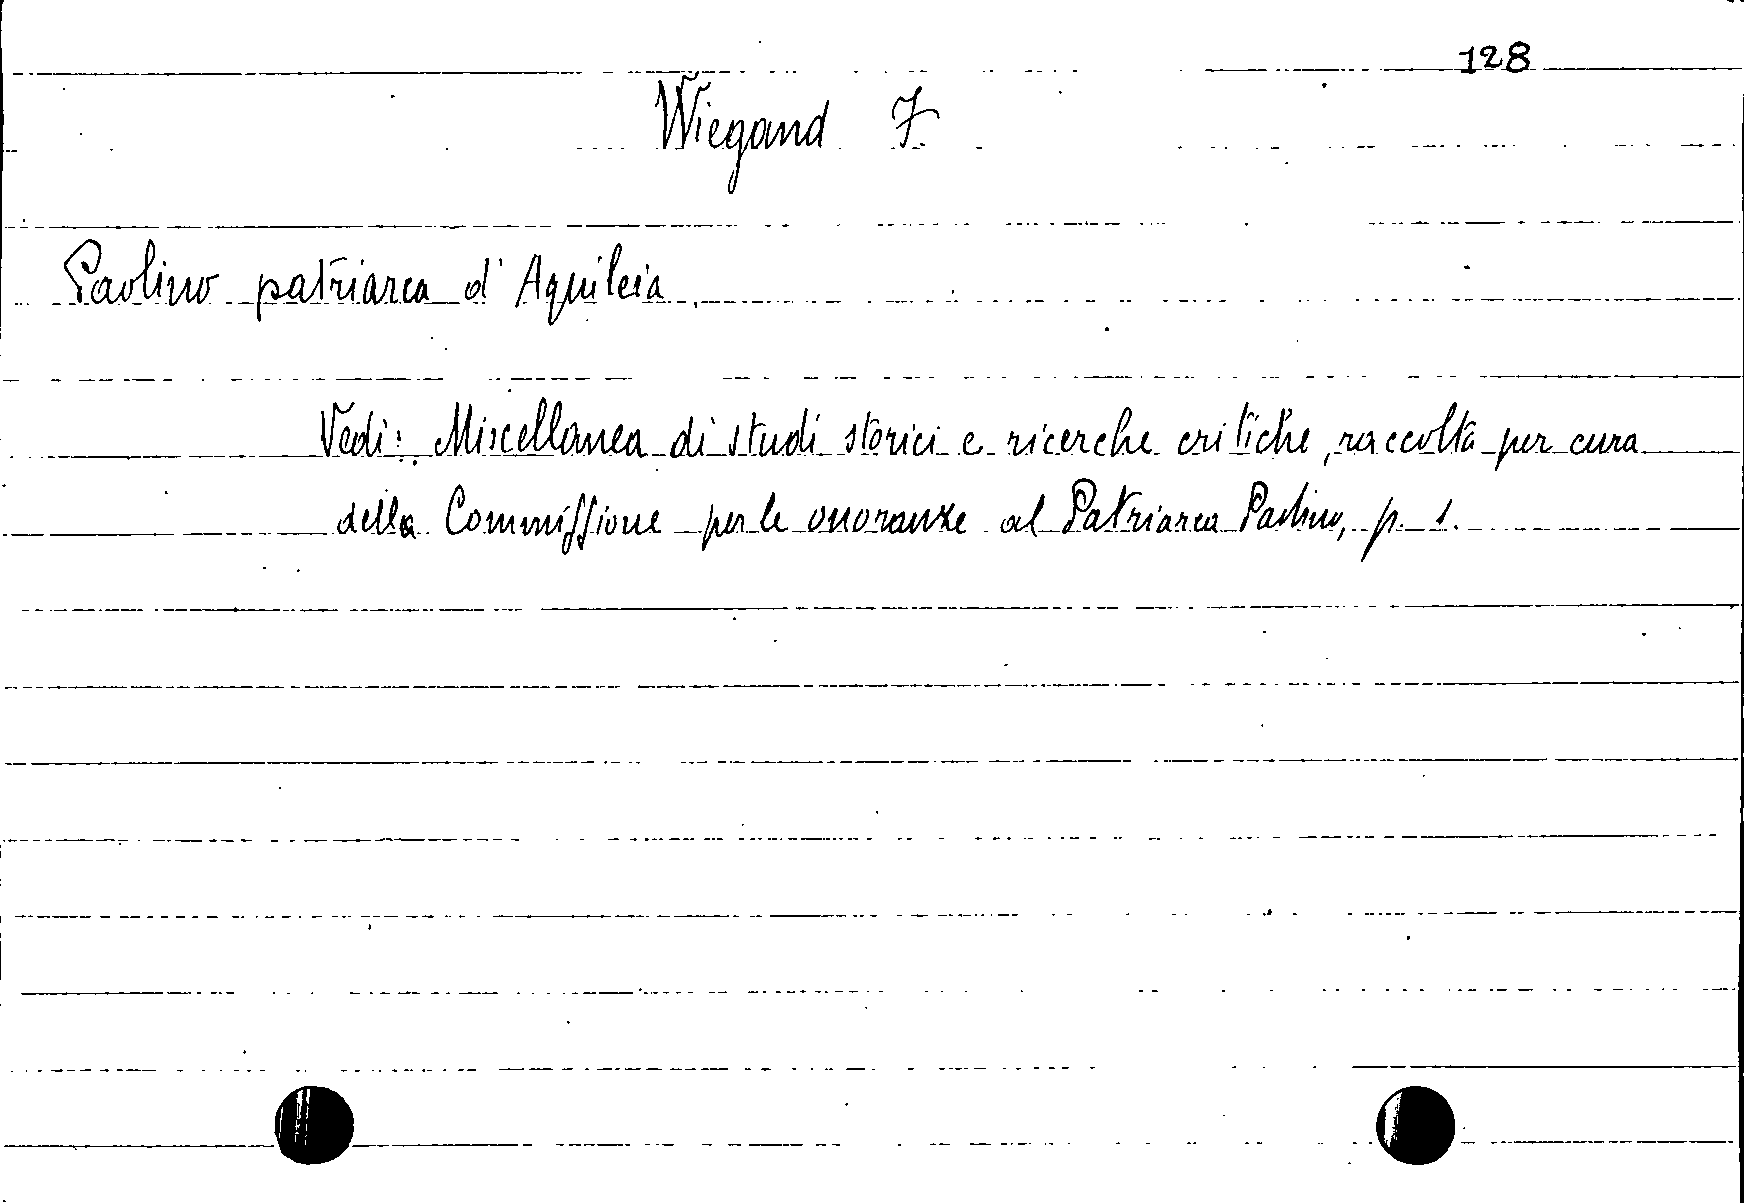 128
Wiegand F.
Paolino patriarca d'Aquileia.
Vedi: Miscellanea di studi storici e ricerche critiche, raccolta per cura
della Commissione per le onoranze al Patriarca Paolino, p. 1.